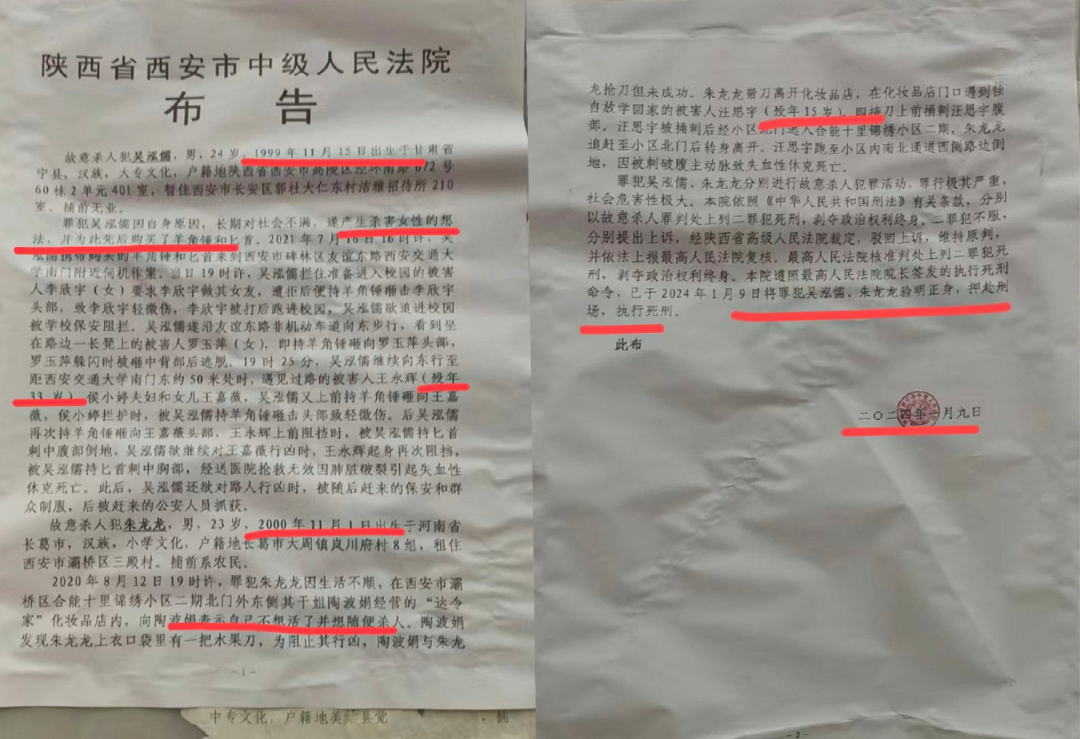 陕西省西安市中级人民法院
布告
故意杀人犯吴泓儒，男，24岁，1999年11月15日出生于甘肃省
宁县，汉族，大专文化，户籍地陕西省西安市高陵区泾环南路672号
60栋2单元401室，暂住西安市长安区郭杜大仁东村洁雅招待所210
室。捕前无业。
罪犯吴泓儒因自身原因，长期对社会不满，遂产生杀害女性的想
法，并为此先后购买了羊角锤和匕首。2021年7月16日16时许，吴
泓儒携带购买的羊角锤和匕首来到西安市碑林区友谊东路西安交通大
学南门附近伺机作案。当日19时许，吴泓儒拦住准备进入校园的被害
人李欣宇（女）要求李欣宇做其女友，遭拒后便持羊角锤砸击李欣宇
头部，致李欣宇轻微伤，李欣宇被打后跑进校园，吴泓儒欲追进校园
被学校保安阻拦。吴泓儒遂沿友谊东路非机动车道向东步行，看到坐
在路边一长凳上的被害人罗玉萍（女），即持羊角锤砸向罗玉萍头部，
罗玉萍躲闪时被砸中背部后逃脱。19时25分，吴泓儒继续向东行至
距西安交通大学南门东约50米处时，遇见过路的被害人王永辉（殁年
33岁）、侯小婷夫妇和女儿王嘉薇，吴泓儒又上前持羊角锤砸向王嘉
薇，侯小婷拦护时，被吴泓儒持羊角锤砸击头部致轻微伤。后吴泓儒
再次持羊角锤砸向王嘉薇头部，王永辉上前阻挡时，被吴泓儒持匕首
刺中腹部倒地，吴泓儒欲继续对王嘉薇行凶时，王永辉起身再次阻挡，
被吴泓儒持匕首刺中胸部，经送医院抢救无效因肺脏破裂引起失血性
休克死亡。此后，吴泓儒还欲对路人行凶时，被随后赶来的保安和群
众制服，后被赶来的公安人员抓获。
故意杀人犯朱龙龙，男，23岁，2000年11月1日出生于河南省
长葛市，汉族，小学文化，户籍地长葛市大周镇岚川府村8组，租住
西安市灞桥区三殿村。捕前系农民。
2020年8月12日19时许，罪犯朱龙龙因生活不顺，在西安市灞
桥区合能十里锦绣小区二期北门外东侧其干姐陶波娟经营的“达令
家”化妆品店内，向陶波娟表示自己不想活了并想随便杀人。陶波娟
发现朱龙龙上衣口袋里有一把水果刀，为阻止其行凶，陶波娟与朱龙
-1-
中专文化，户籍地 县党
龙抢刀但未成功。朱龙龙带刀离开化妆品店，在化妆品店门口遇到独
自放学回家的被害人汪思宇（殁年15岁），即持刀上前捅刺汪思宇腹
部。汪思宇被捅刺后经小区北门进入合能十里锦绣小区二期，朱龙龙
追赶至小区北门后转身离开。汪思宇跑至小区内南北通道西侧路边倒
地，因被刺破腹主动脉致失血性休克死亡。
罪犯吴泓儒、朱龙龙分别进行故意杀人犯罪活动，罪行极其严重，
社会危害性极大。本院依照《中华人民共和国刑法》有关条款，分别
以故意杀人罪判处上列二罪犯死刑，剥夺政治权利终身。二罪犯不服，
分别提出上诉，经陕西省高级人民法院裁定，驳回上诉，维持原判，
并依法上报最高人民法院复核。最高人民法院核准判处上列二罪犯死
刑，剥夺政治权利终身。本院遵照最高人民法院院长签发的执行死刑
命令，已于2024年1月9日将罪犯吴泓儒、朱龙龙验明正身，押赴刑
场，执行死刑。
此布
二〇二四年一月九日
-2-